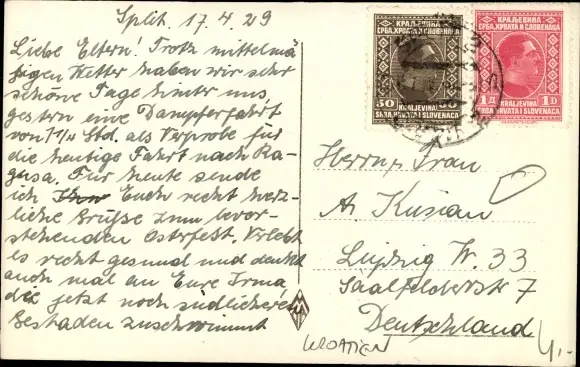 Split, 17.4.29
Liebe Eltern! Trotz mittelmä
ßigen Wetter haben wir sehr
schöne Tage hinter uns,
gestern eine Dampferfahrt
von 7 1/4 Std. als Vorprobe für
die heutige Fahrt nach Ra-
gusa. Für heute sende
ich Euch recht herz-
liche Grüße zum bevor-
stehenden Osterfest. Verlebt
es recht gesund und denkt
auch mal an Eure Irma,
die jetzt noch südlicheren
Gestaden zuschwimmt
КРАЉЕВИНА
СРБА, ХРВАТА И СЛОВЕНАЦА
50 50
KRALJEVINA
SRBA, HRVATA I SLOVENACA
КРАЉЕВИНА
СРБА, ХРВАТА И СЛОВЕНАЦА
1Д 1D
KRALJEVINA
SRBA, HRVATA I SLOVENACA
Herrn u. Frau
A. Kusian
Leipzig W. 33
Saalfelderstr 7
Deutschland
KROATIEN
4,-